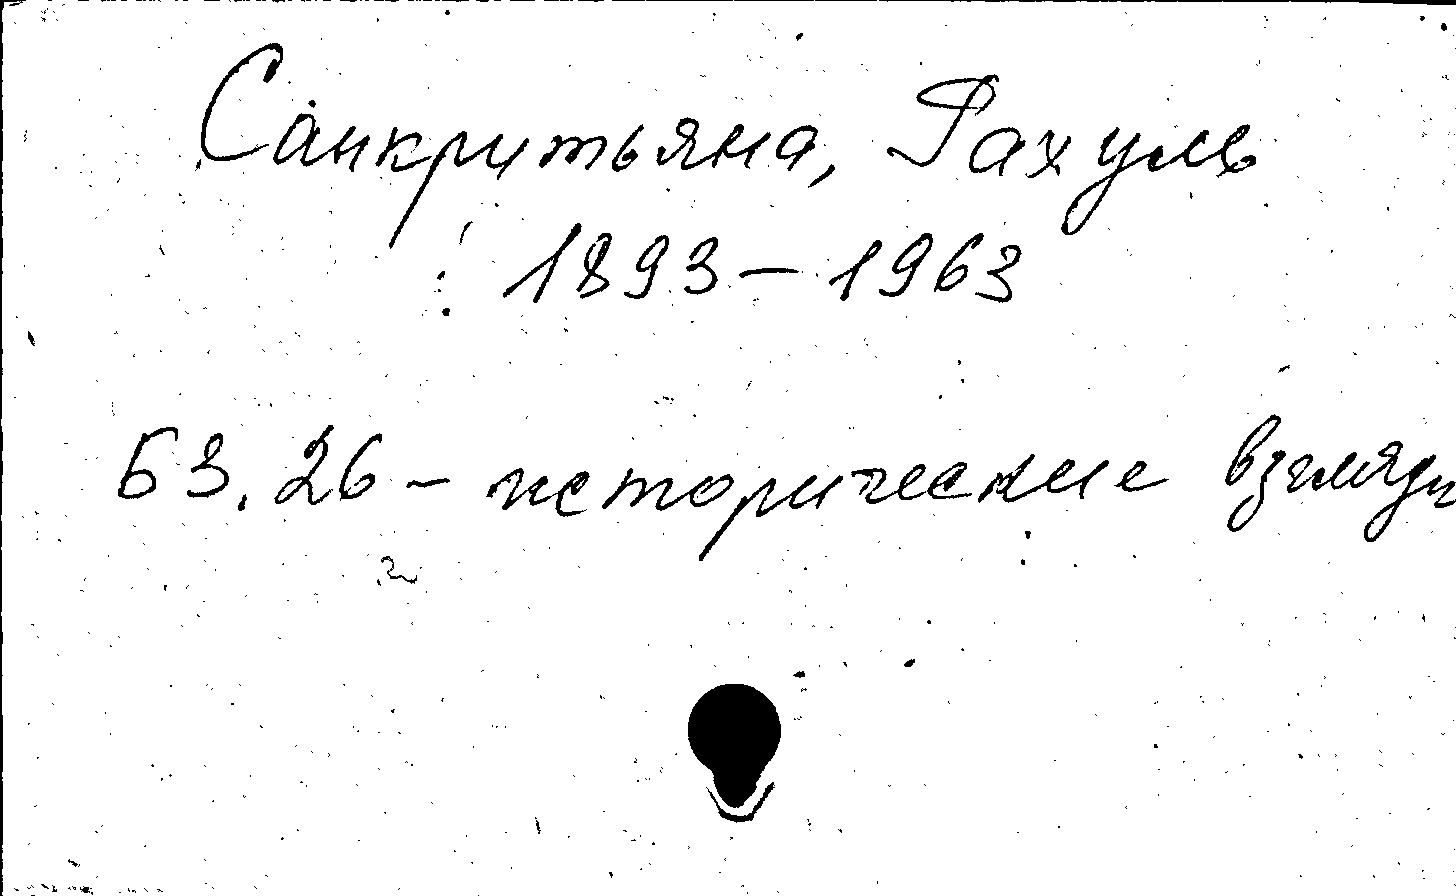 Санкритьяна, Рахуль
1893 – 1963
Б3.26 – исторические взгляды